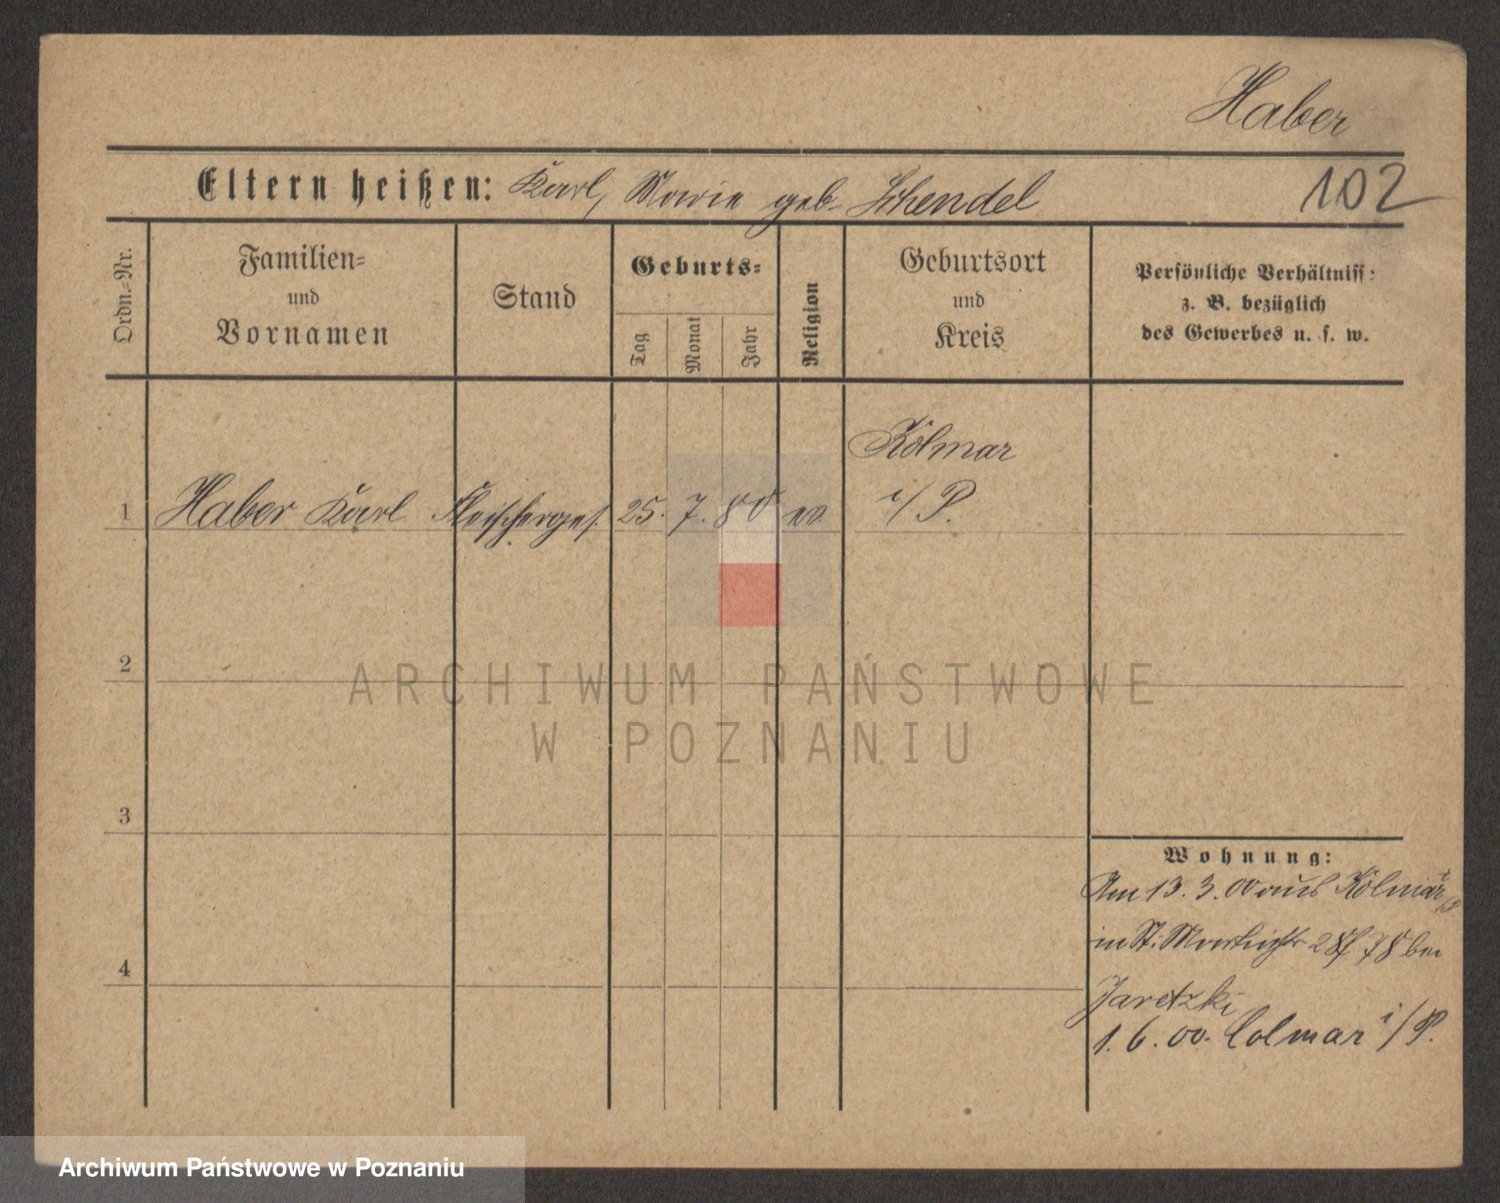 Haber
Eltern heißen: Karl, Marie geb. Schendel
102
Ordn.-Nr.
Familien-
und
Vornamen
Stand
Geburts-
Tag
Monat
Jahr
Religion
Geburtsort
und
Kreis
Persönliche Verhältniss:
z. B. bezüglich
des Gewerbes u. s. w.
Kolmar
1 Haber Karl Fleischerges. 25. 7. 80 ev i/P.
2
ARCHIWUM PAŃSTWOWE
W POZNANIU
3
Wohnung:
Am 13. 3. 00 aus Kolmar i/P
in St. Martinstr 78 bei
4
Jaretzki
1. 6. 00. Colmar i/P.
Archiwum Państwowe w Poznaniu